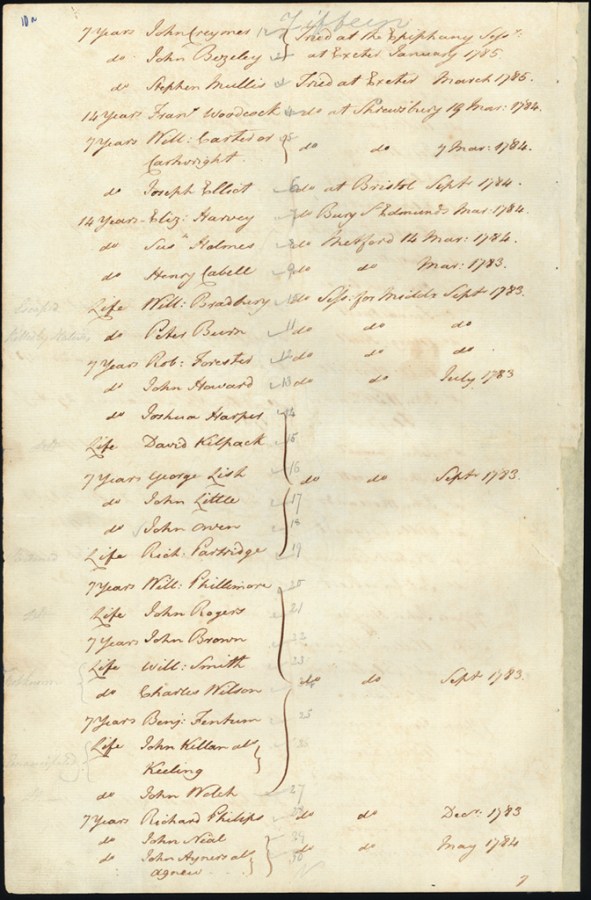 10a
7 Years John Creymes 1 Tried at the Epiphany Sess:
do John Bezeley 2 at Exeter January 1785.
do Stephen Mullis Tried at Exeter March 1785.
14 Years Frans Woodcock 4 do at Shrewsbury 19 Mar: 1784.
7 Years Will: Carter or 5
Cartwright do do 7 Mar: 1784.
do Joseph Elliot 6 do at Bristol Sept 1784.
14 Years Eliz: Harvey 7 do Bury St Edmunds Mar: 1784.
do Susa Holmes 8 do Thetford 14 Mar: 1784.
do Henry Cabell 9 do do Mar: 1783.
Life Will: Bradbury 10 do Sess: for Middx Sept 1783.
do Peter Burn 11 do do do
7 Years Rob: Forester 12 do do do.
do John Howard 13 do do July 1783
do Joshua Harper 14
Life David Kilpack 15
7 Years George Lish 16 do do Sept 1783.
do John Little 17
do John Owen 18
Life Rich: Partridge 19
7 Years Will: Phillimore 20
Life John Rogers 21
7 Years John Brown 22
Life Will: Smith 23
do Charles Wilson do do Sept 1783.
7 Years Benj: Fentum 25
Life John Killan als
Keeling
do John Welch 27
7 Years Richard Philips 28 do do Decr: 1783
do John Neal 29
do John Ayners als 30 do do May 1784
Agnew
7